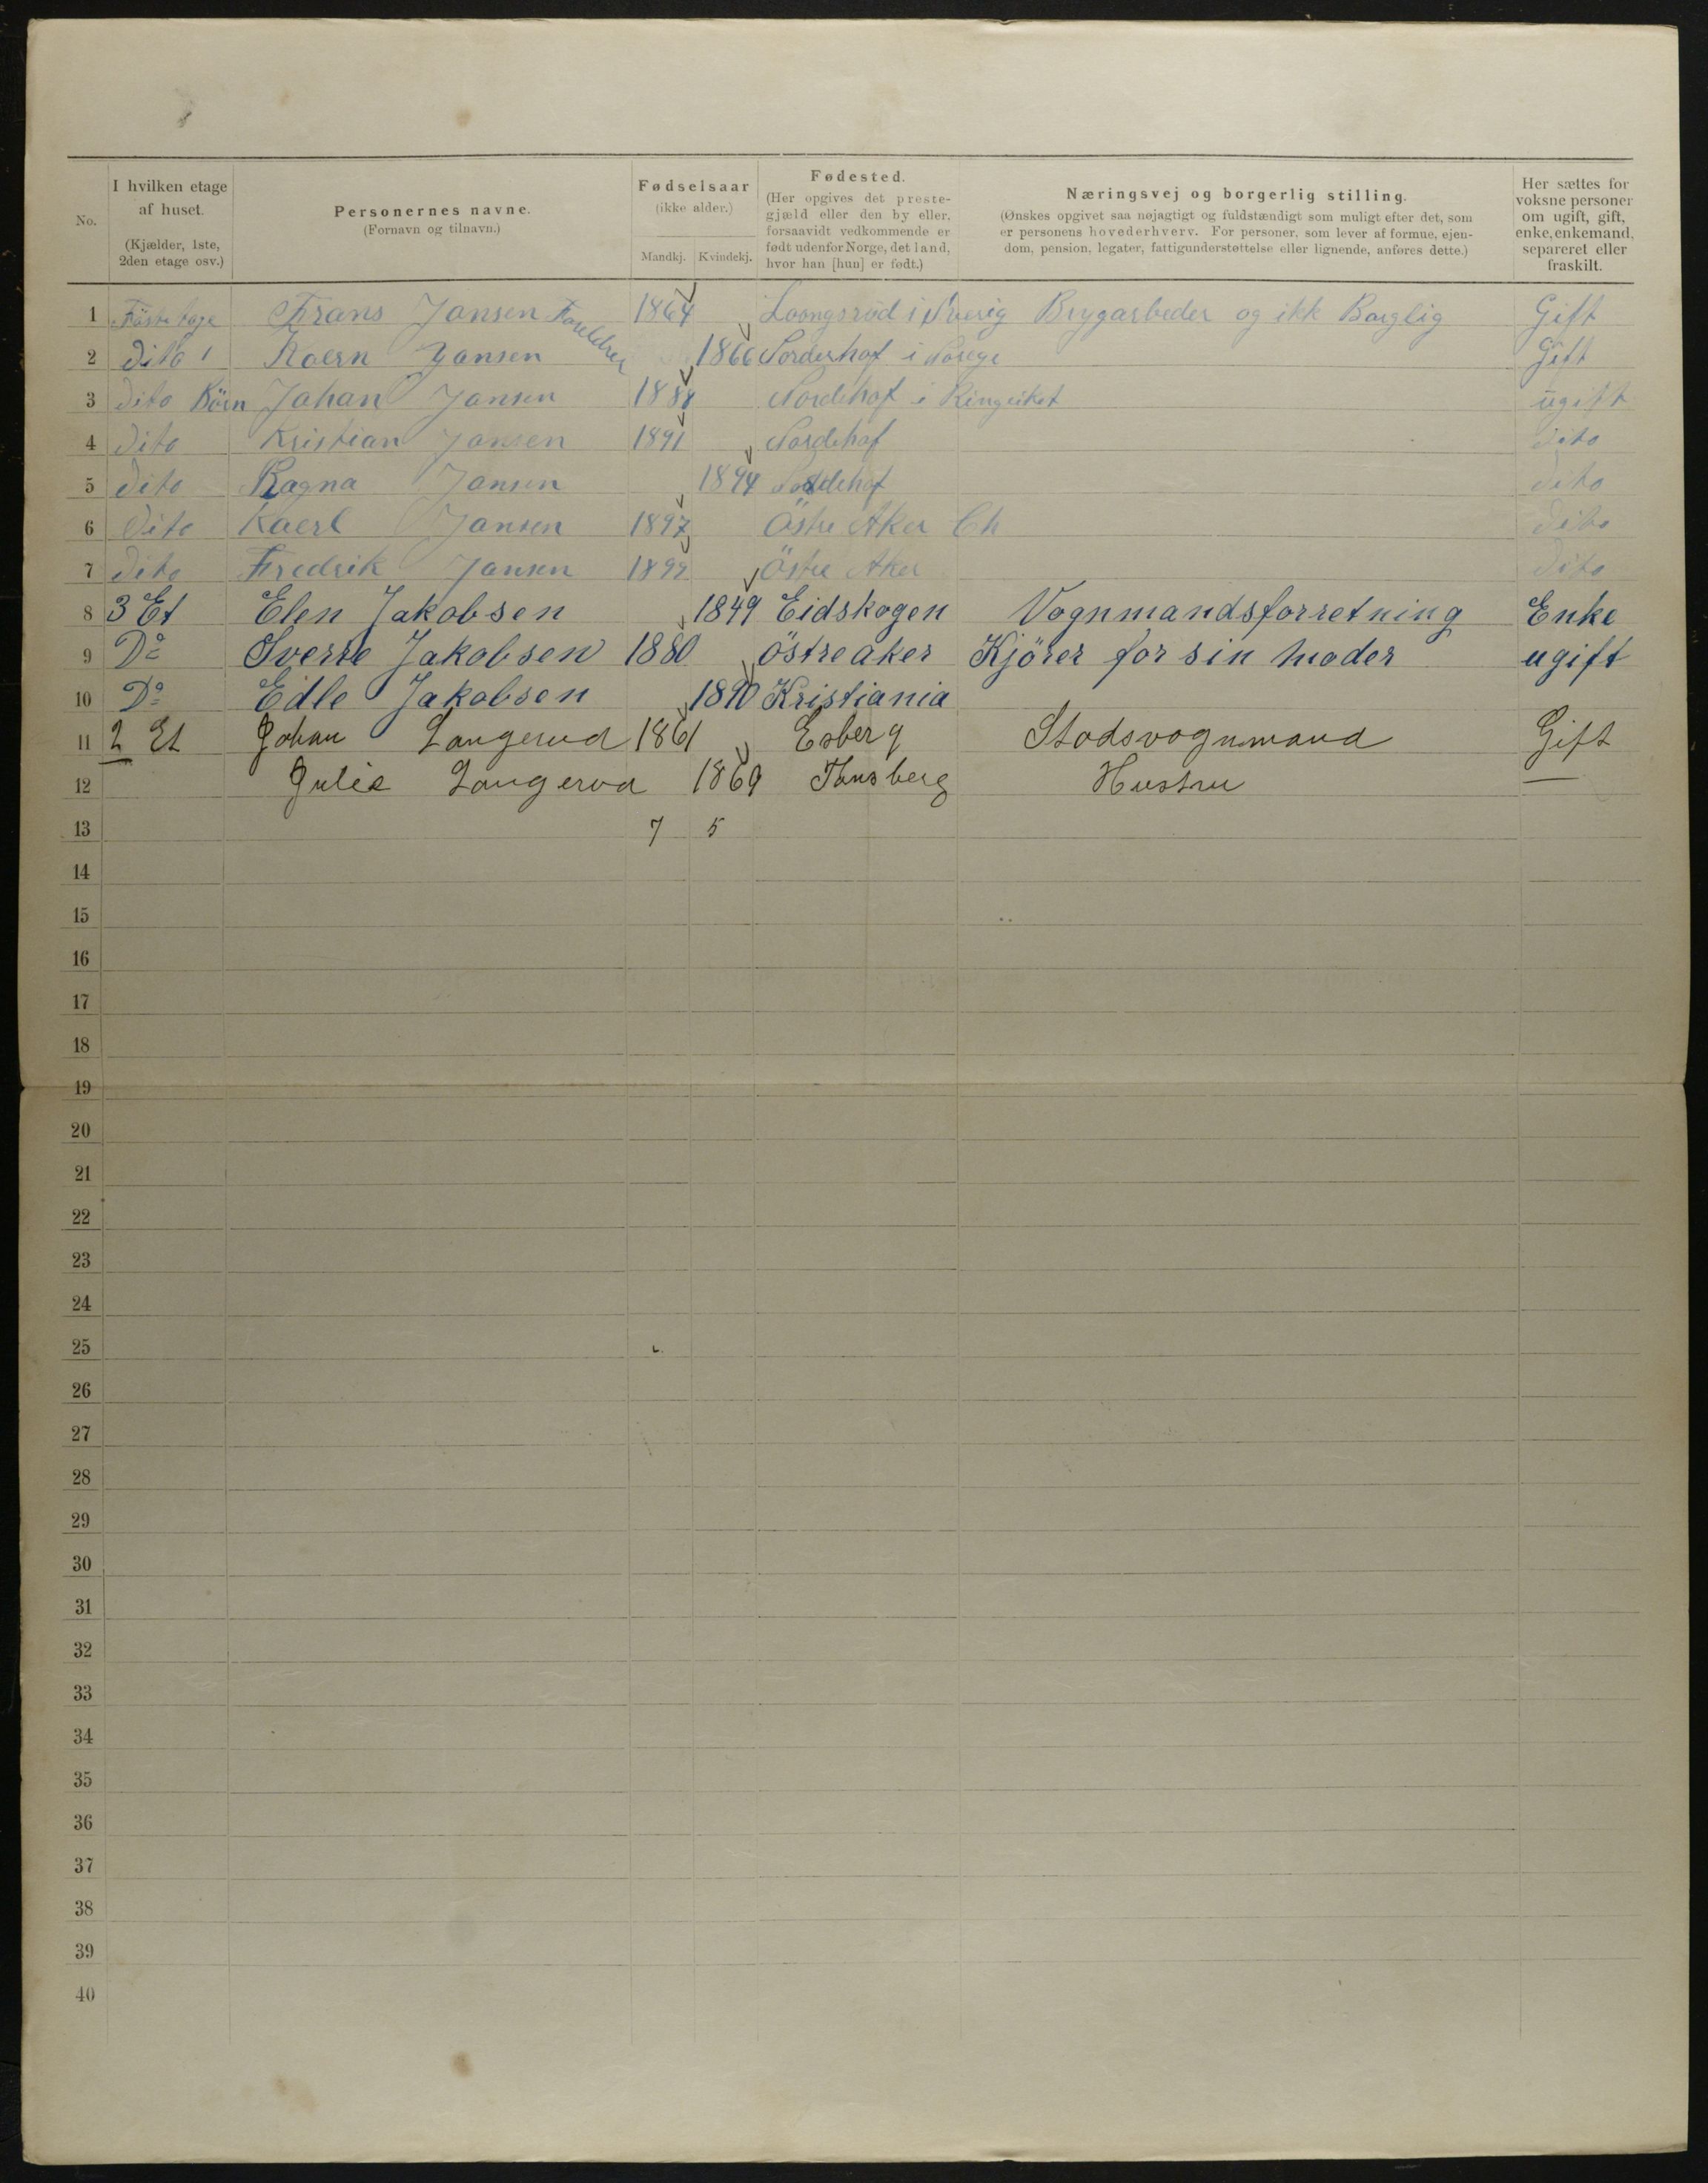 No.
I hvilken etage af huset. (Kjælder, 1ste, 2den etage osv.)
Personernes navne. (Fornavn og tilnavn.)
Fødselsaar (ikke alder.) Mandkj. Kvindekj.
Fødested. (Her opgives det prestegjæld eller den by eller, forsaavidt vedkommende er født udenfor Norge, det land, hvor han [hun] er født.)
Næringsvej og borgerlig stilling. (Ønskes opgivet saa nøjagtigt og fuldstændigt som muligt efter det, som er personens hovederhverv. For personer, som lever af formue, ejendom, pension, legater, fattigunderstøttelse eller lignende, anføres dette.)
Her sættes for voksne personer om ugift, gift, enke, enkemand, separeret eller fraskilt.
1 Frans Jansen 1864 i Sverig Brygarbeder og ikk Borglig Gift
2 Dito Kaern Jansen 1866 Norderhof i Norge Gift
3 Dito Börn Johan Jansen 1888 Nordehof i Ringeriket ugift
4 Dito Kristian Jansen 1891 Nordehof Dito
5 Dito Ragna Jansen 1894 Nordehof Dito
6 Dito Kaerl Jansen 1897 Östre Aker Ch Dito
7 Dito Fredrik Jansen 1899 Östre Aker Dito
8 3 Et Elen Jakobsen 1849 Eidskogen Vognmandsforretning Enke
9 Do Sverre Jakobsen 1880 östre aker Kjörer for sin moder ugift
10 Do Edle Jakobsen 1890 Kristiania
11 2 Et Johan Langerud 1861 Esberg Stadsvognmand Gift
12 Julie Langerud 1869 Tønsberg Hustru —
13 7 5
14
15
16
17
18
19
20
21
22
23
24
25
26
27
28
29
30
31
32
33
34
35
36
37
38
39
40